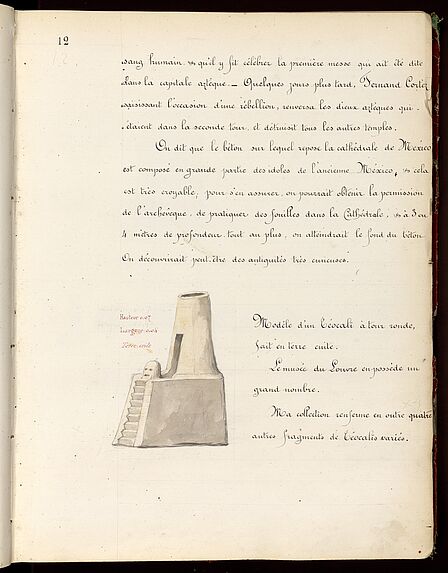 12
sang humain, & qu'il y fit célébrer la première messe qui ait été dite
dans la capitale aztèque. — Quelques jours plus tard, Fernand Cortez
saisissant l'occasion d'une rébellion, renversa les dieux aztèques qui
étaient dans la seconde tour, et détruisit tous les autres temples.
On dit que le béton sur lequel repose la cathédrale de Mexico
est composé en grande partie des idoles de l'ancienne México, & cela
est très croyable, pour s'en assurer, on pourrait obtenir la permission
de l'archevêque, de pratiquer des fouilles dans la Cathédrale, & à 3 ou
4 mètres de profondeur tout au plus, on atteindrait le fond du béton
On découvrirait peut-être des antiquités très curieuses.
Hauteur 0,07
Largeur 0,04
Terre cuite
Modèle d'un Téocali à tour ronde,
fait en terre cuite.
Le musée du Louvre en possède un
grand nombre.
Ma collection renferme en outre quatre
autres fragments de Téocalis variés.